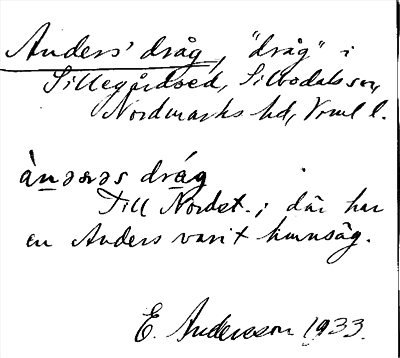 Anders' dråg, "dråg" i
Sillegårdsed, Silbodals sn,
Nordmarks hd, Vrml l.
ànəṣəs dråg
Till Nordet.; där har
en Anders varit
E. Andersson 1933.